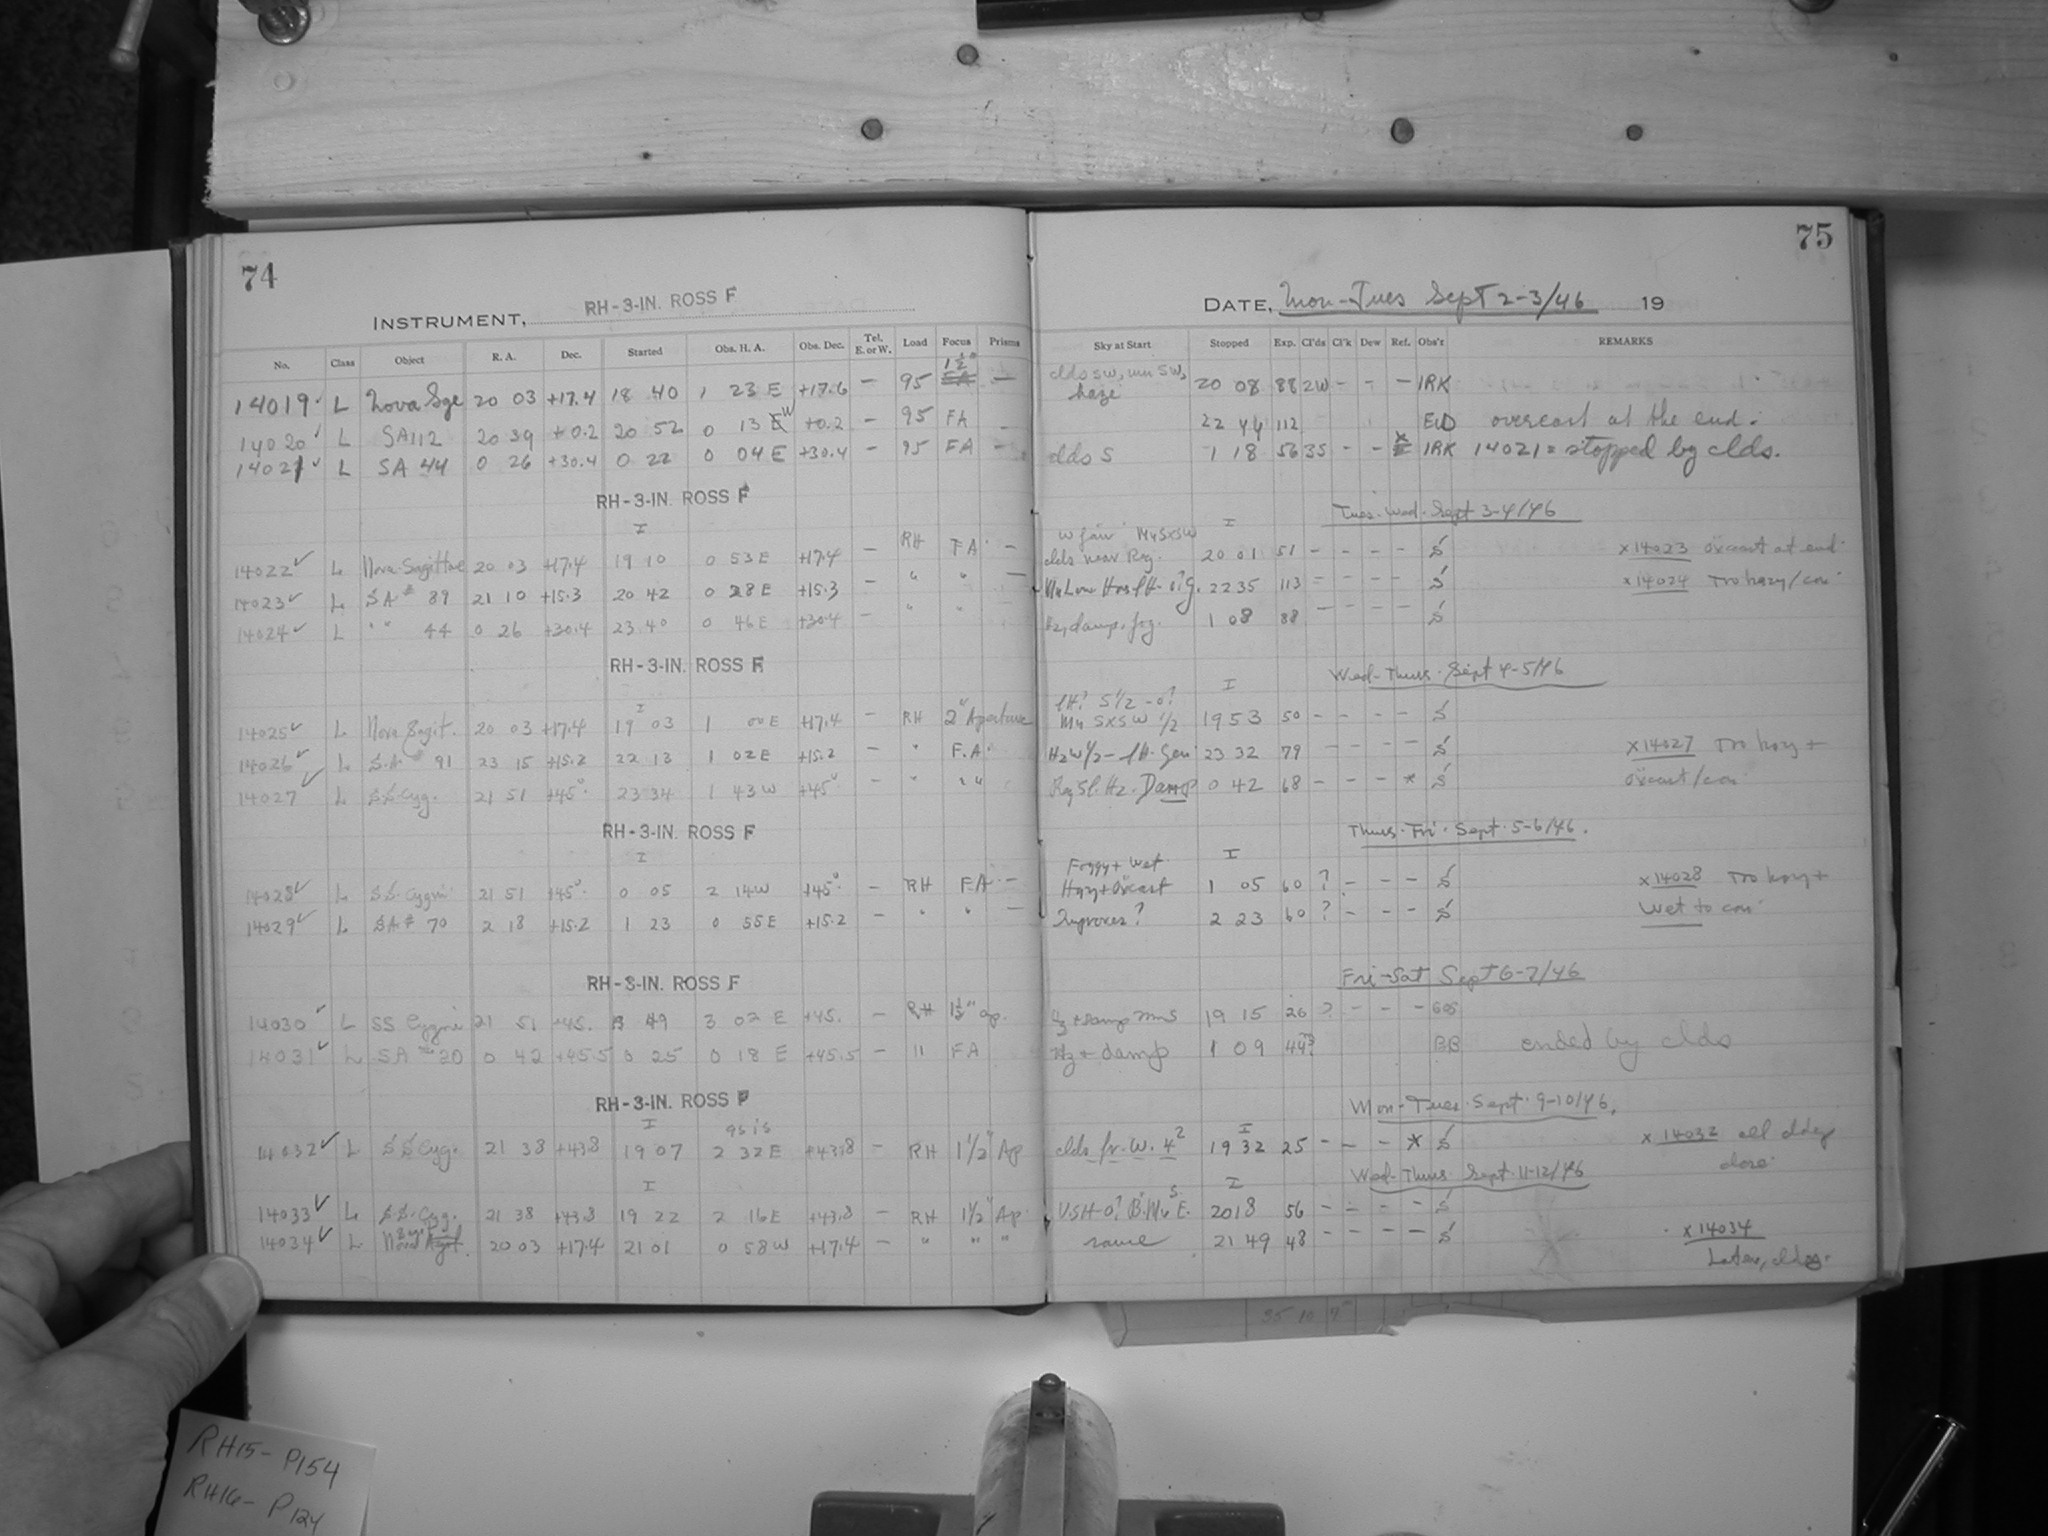 74
INSTRUMENT, RH-3-IN. ROSS F
No. Class Object R. A. Dec. Started Obs. H. A. Obs. Dec. Tel. E. or W. Load Focus Prisms
14019 ✓ L Nova Sge 20 03 +17.4 18 40 1 23 E +17.6 — 95 1½" —
14020 ✓ L SA112 20 39 +0.2 20 52 0 13 W +0.2 — 95 FA —
14021 ✓ L SA 44 0 26 +30.4 0 22 0 04 E +30.4 — 95 FA —
RH-3-IN. ROSS F
I
14022 ✓ L Nova Sagittae 20 03 +17.4 19 10 0 53 E +17.4 — RH FA —
14023 ✓ L SA # 89 21 10 +15.3 20 42 0 28 E +15.3 — " " —
14024 ✓ L " " 44 0 26 +30.4 23 40 0 46 E +30.4 — " "
RH-3-IN. ROSS F
I
14025 ✓ L Nova Sagit. 20 03 +17.4 19 03 1 00 E +17.4 — RH 2" Aperture
14026 ✓ L S.A # 91 23 15 +15.2 22 13 1 02 E +15.2 — " F.A.
14027 ✓ L SS Cyg. 21 51 +45° 23 34 1 43 W +45° — " " "
RH-3-IN. ROSS F
I
14028 ✓ L SS. Cygni 21 51 +45° 0 05 2 14 W +45° — RH FA —
14029 ✓ L SA # 70 2 18 +15.2 1 23 0 55 E +15.2 — " " —
RH-3-IN. ROSS F
14030 ✓ L SS Cygni 21 51 +45. 49 3 02 E +45. — RH 1½" ap.
14031 ✓ L SA No 20 0 42 +45.5 0 25 0 18 E +45.5 — 11 FA
RH-3-IN. ROSS F
I
14032 ✓ L SS Cyg. 21 38 +43.8 19 07 2 32 E +43.8 — RH 1½" Ap
I
14033 ✓ L SS. Cyg. 21 38 +43.8 19 22 2 16 E +43.8 — RH 1½" Ap.
14034 ✓ L Nova 20 03 +17.4 21 01 0 58 W +17.4 — " " "
75
DATE, Mon-Tues Sept 2-3/46 19
Sky at Start Stopped Exp. Cl'ds Cl'k Dew Ref. Obs'r REMARKS
clds SW, mn SW, haze 20 08 88 2W - - - IRK
22 44 112 EWD overcast at the end.
clds S 1 18 56 3S - - IRK 14021 = stopped by clds.
Tues-Wed-Sept 3-4/46
I
clds near Reg. 20 01 51 - - - - S x 14023 at end
22 35 113 - - - - S x 14024 Too hazy/con
Hz, damp, fog. 1 08 88 - - - - S
Wed-Thurs. Sept 4-5/46
I
Mn SXSW ½ 19 53 50 - - - - S
Hz W ½ - 23 32 79 - - - - S x 14027 Too hazy +
Damp 0 42 68 - - - * S
Thurs-Fri. Sept. 5-6/46.
I
Foggy + Wet
1 05 60 ? - - - S x 14028 Too hazy +
Improves? 2 23 60 ? - - - S wet to con
Fri-Sat Sept 6-7/46
19 15 26 ? - - -
Hz + damp 1 09 44 ? BB ended by clds
Mon-Tues. Sept. 9-10/46.
I
clds fr. W. 4² 19 32 25 - - - * S x 14032 all
Wed-Thurs Sept. 11-12/46
I
20 18 56 - - - - S
same 21 49 48 - - - - S x 14034
RH15- P154
RH16- P124